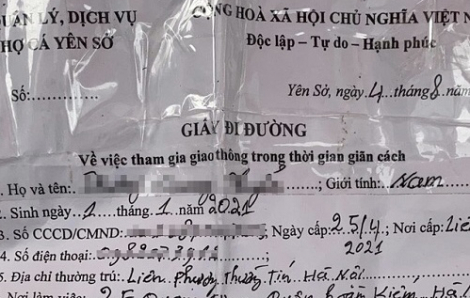 QUẢN LÝ, DỊCH VỤ
CỘNG HOÀ XÃ HỘI CHỦ NGHĨA VIỆT N
HỢ CÁ YÊN SỞ
Độc lập – Tự do – Hạnh phúc
Số:
Yên Sở, ngày 4 tháng 8 năm
GIẤY ĐI ĐƯỜNG
Về việc tham gia giao thông trong thời gian giãn cách
. Họ và tên: ; Giới tính: Nam
2. Sinh ngày 1 tháng 1 năm 2021
3. Số CCCD/CMND: Ngày cấp: 25/4/ Nơi cấp: Liê
2021
4. Số điện thoại:
5. Địa chỉ thường trú: Liên Phương Thường Tín, Hà Nội
Nơi làm việc: Quận Hoàn Kiếm, Hà